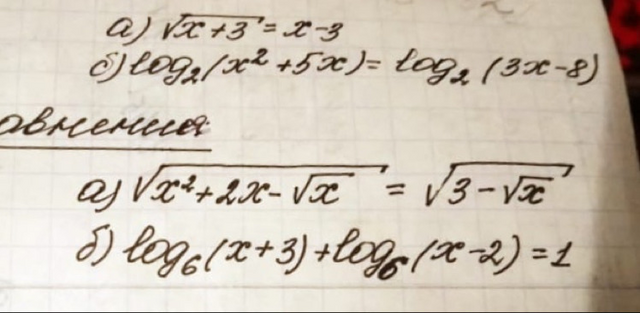 а) √x+3 = x-3
б) log₂(x² +5x)= log₂ (3x-8)
авнения
а) √x²+2x-√x = √3-√x
б) log₆(x+3)+log₆(x-2)=1